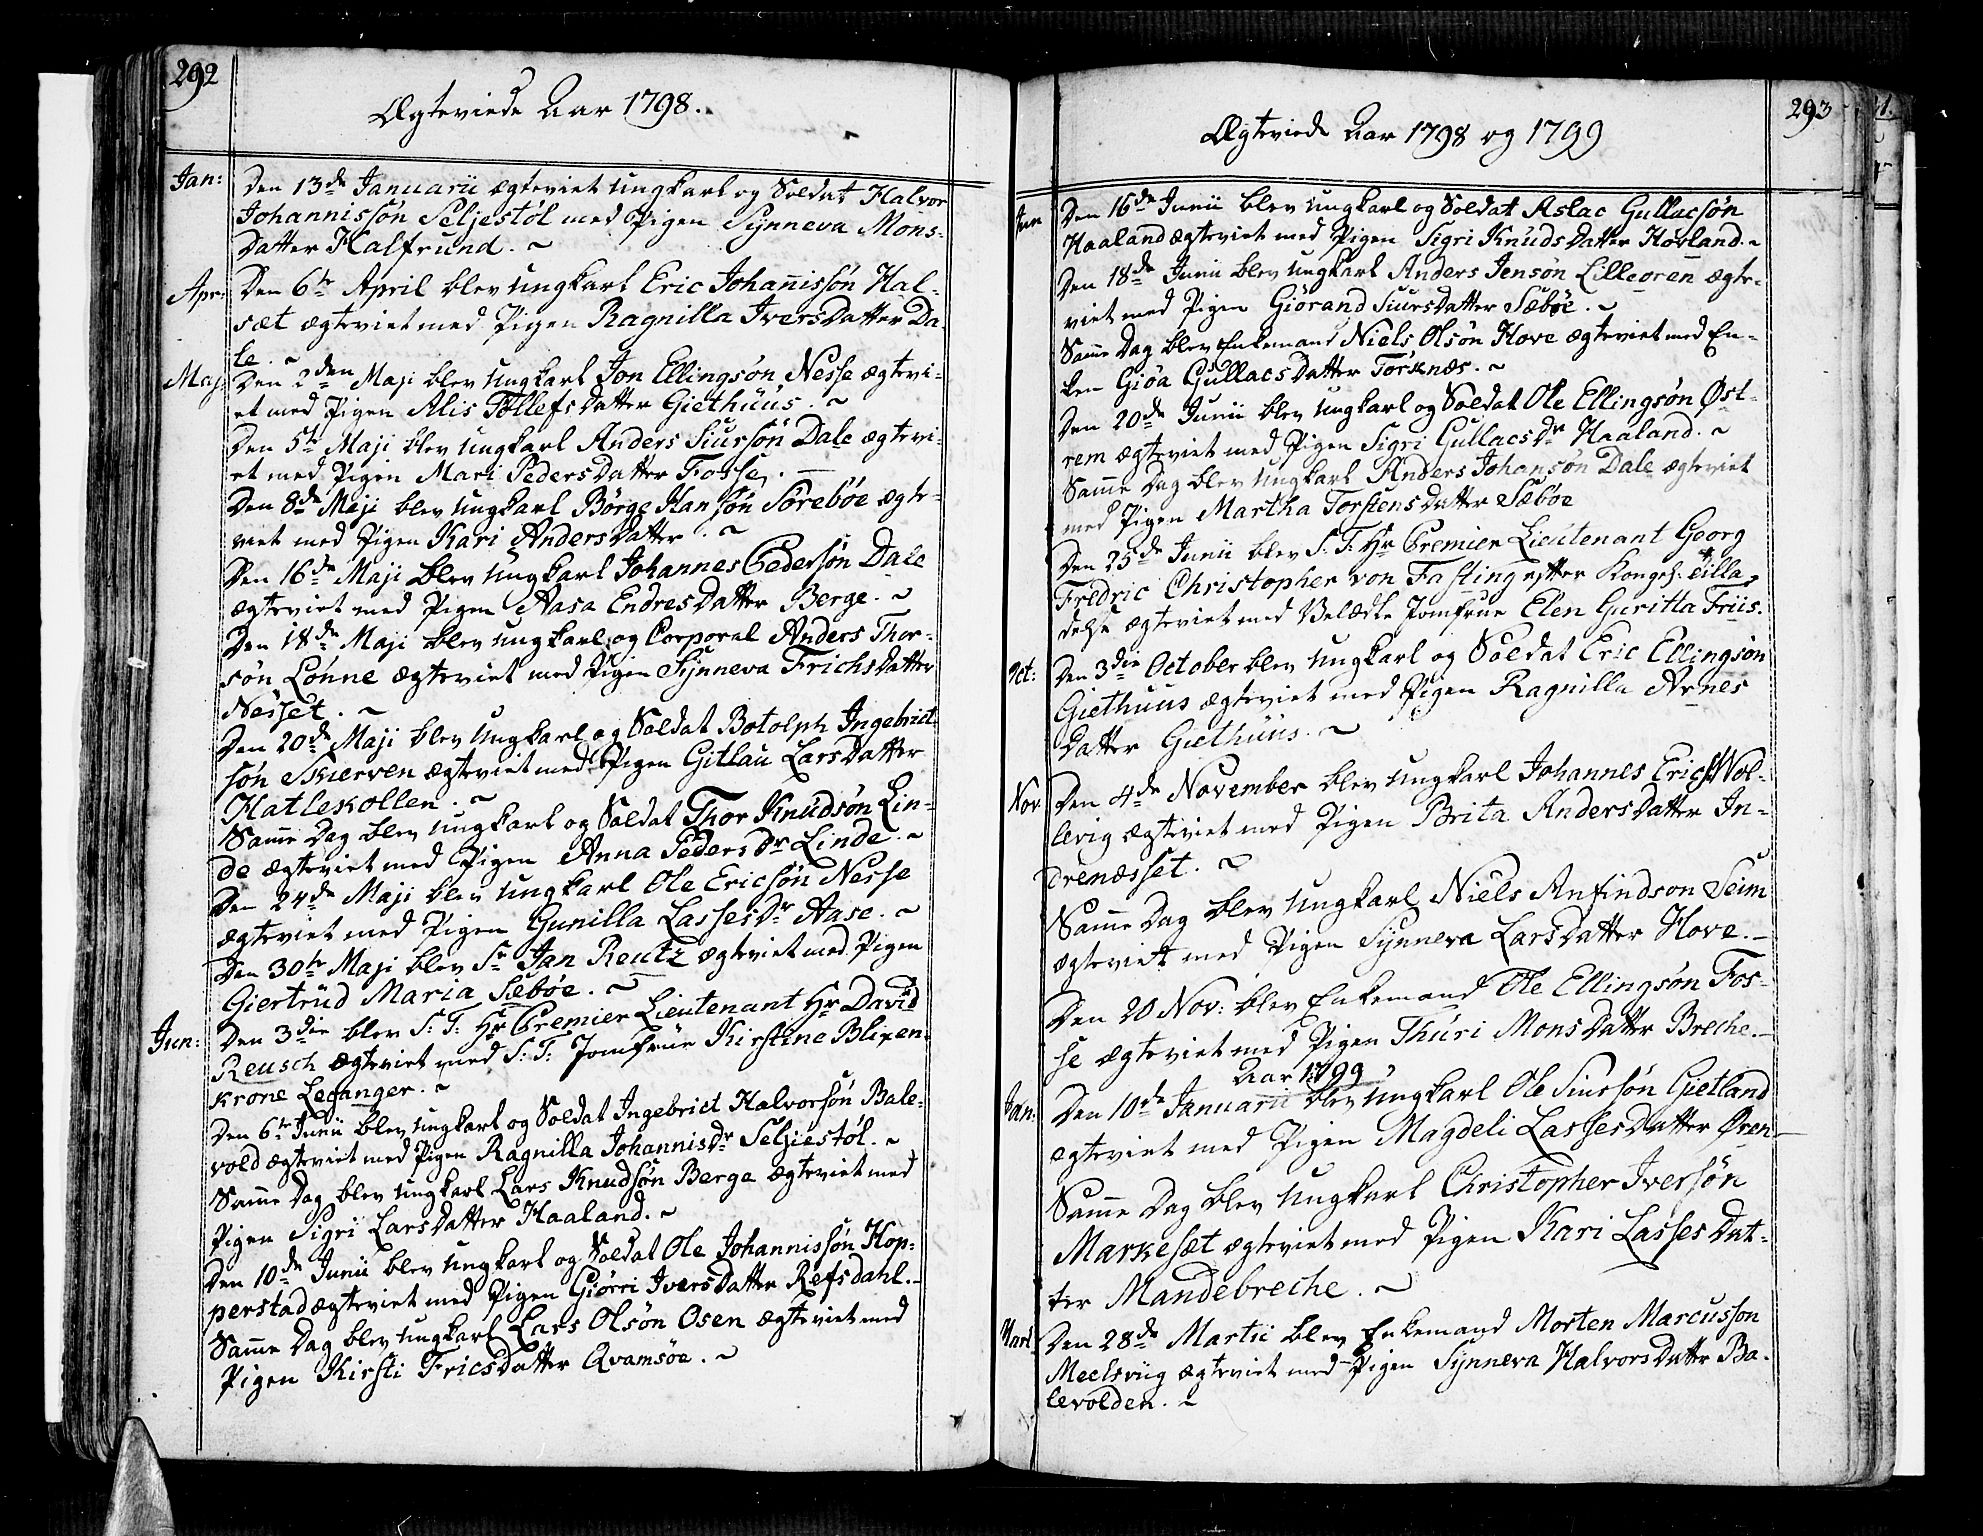 292
Ægteviede Aar 1798.
Jan: Den 13de Januarii ægteviet Ungkarl og Soldat Halvor
Johannissøn Seljestøl med Pigen Synneva Mons-
Datter Halfrund. ~
Apr: Den 6te April blev Ungkarl Eric Johanissøn Hal-
sæt ægteviet med Pigen Ragnilla IversDatter Da-
le. ~
Maj: Den 2den Maji blev Ungkarl Jon Ellingsøn Nesse ægtevi-
et med Pigen Alis TollefsDatter Giethuus. ~
Den 5te Maji blev Ungkarl Anders Siursøn Dale ægtevi-
et med Pigen Mari PedersDatter Fosse.
Den 8de Maji blev Ungkarl Børge Hansøn Sørebøe ægte-
viet med Pigen Kari AndersDatter. ~
Den 16de Maji blev Ungkarl Johannes Pedersøn Dale
ægteviet med Pigen Aasa EndresDatter Berge. ~
Den 18de Maji blev Ungkarl og Corporal Anders Thor-
søn Lønne ægteviet med Pigen Synneva FrichsDatter
Nesset. ~
Den 20de Maji blev Ungkarl og Soldat Botolph Ingebrict-
søn Skierven ægteviet med Pigen Gitlau LarsDatter
Hatlekollen. ~
Samme Dag blev Ungkarl og Soldat Thor Knudsøn Lin-
de ægteviet med Pigen Anna PedersDr Linde. ~
Den 24de Maji blev Ungkarl Ole Ericsøn Nesse
ægteviet med Pigen Gunilla LassesDr Aase. ~
Den 30te Maji blev Sr Jan Reutz ægteviet med Pigen
Giertrud Maria Sæbøe. ~
Jun: Den 3die blev S: T: Hr Premier Lieutenant Hr David
Reusch ægteviet med S: T: Jomfrue Kirstine Blixen-
krone Leganger. ~
Den 6te Junii blev Ungkarl og Soldat Ingebrict Halvorsøn Bale-
vold ægteviet med Pigen Ragnilla JohannisDr Seljestøl. ~
Samme Dag blev Ungkarl Lars Knudsøn Berge ægteviet med
Pigen Sigri LarsDatter Haaland. ~
Den 10de Junii blev Ungkarl og Soldat Ole Johannissøn Hop-
perstad ægteviet med Pigen Giørri IversDatter Refsdahl.
Samme Dag blev Ungkarl Lars Olsøn Osen ægteviet med
Pigen Kirsti FricsDatter Qvamsøe. ~
293
Ægteviede Aar 1798 og 1799
Jun Den 16de Junii blev Ungkarl og Soldat Aslac Gullacsøn
Haaland ægteviet med Pigen Sigri KnudsDatter Hovland. ~
Den 18de Junii blev Ungkarl Anders Jensøn Lilleoren ægte-
viet med Pigen Giørand SiursDatter Sæbøe. ~
Samme Dag blev Enkemand Niels Olsøn Hove ægteviet med En-
ken Giøa GullacsDatter Torsnæs. ~
Den 20de Junii blev Ungkarl og Soldat Ole Ellingsøn Øst-
rem ægteviet med Pigen Sigri GullacsDr Haaland. ~
Samme Dag blev Ungkarl Anders Johansøn Dale ægteviet
med Pigen Martha TorstensDatter Sæbøe
Den 25de Junii blev S: T: Hr Premier Lieutenant Georg
Fredric Christopher von Fasting efter Kongel: Tilla-
delse ægteviet med Velædle Jomfrue Elen Geritta Friis.
Oct: Den 3die October blev Ungkarl og Soldat Eric Ellingsøn
Giethuus ægteviet med Pigen Ragnilla Arnes
Datter Giethuus. ~
Nov Den 4de November blev Ungkarl Johannes Erics: Nol-
levig ægteviet med Pigen Brita AndersDatter In-
drenæsset. ~
Samme Dag blev Ungkarl Niels Anfindson Seim
ægteviet med Pigen Synneva LarsDatter Hove.
Den 20 Nov: blev Enkemand Ole Ellingsøn Fos-
se ægteviet med Pigen Thuri MonsDatter Breche.
Aar 1799
Jan: Den 10de Januarii blev Ungkarl Ole Siursøn Gietland
ægteviet med Pigen Magdeli LassesDatter Øren
Samme Dag blev Ungkarl Christopher Iversøn
Markesæt ægteviet med Pigen Kari Lasses Dat-
ter Mandebreche. ~
Mart Den 28de Martii blev Enkemand Morten Marcusson
Meelsviig ægteviet med Pigen Synneva HalvorsDatter Ba-
levolden. ~